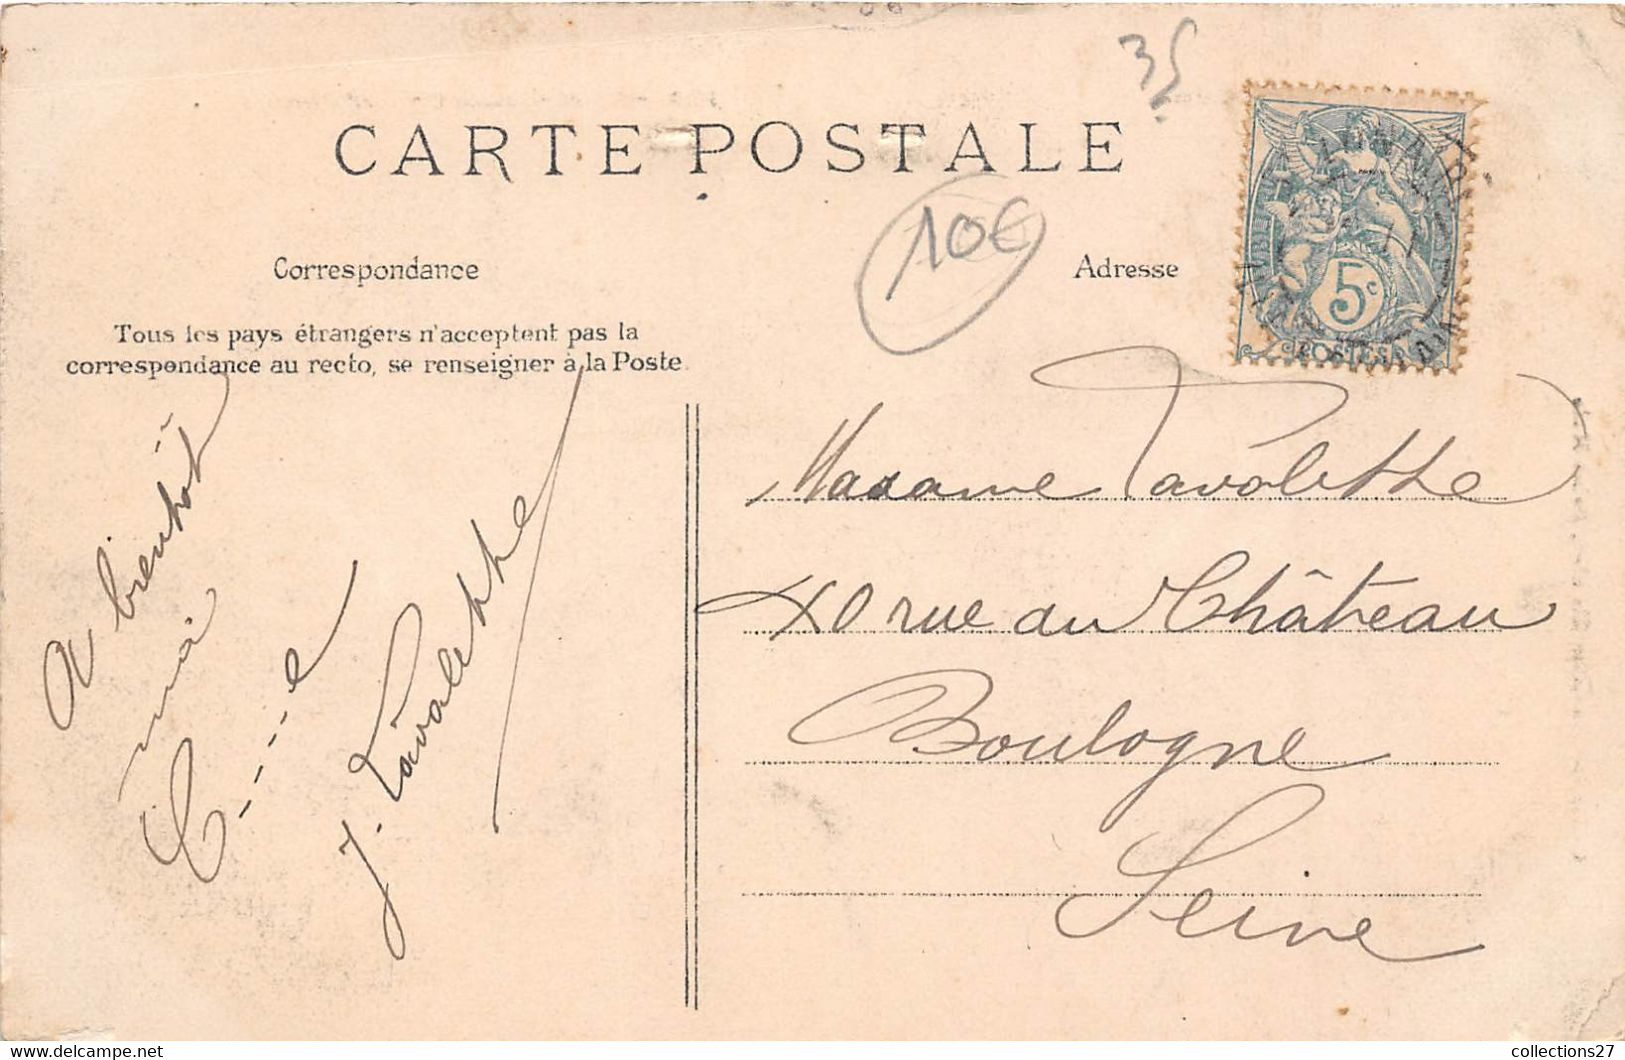 35
CARTE POSTALE
10€
Correspondance
Adresse
Tous les pays étrangers n'acceptent pas la
correspondance au recto, se renseigner à la Poste
5c
POSTES
A bientôt
J. Lavalette
Madame Lavalette
40 rue du Château
Boulogne
Seine
collections27